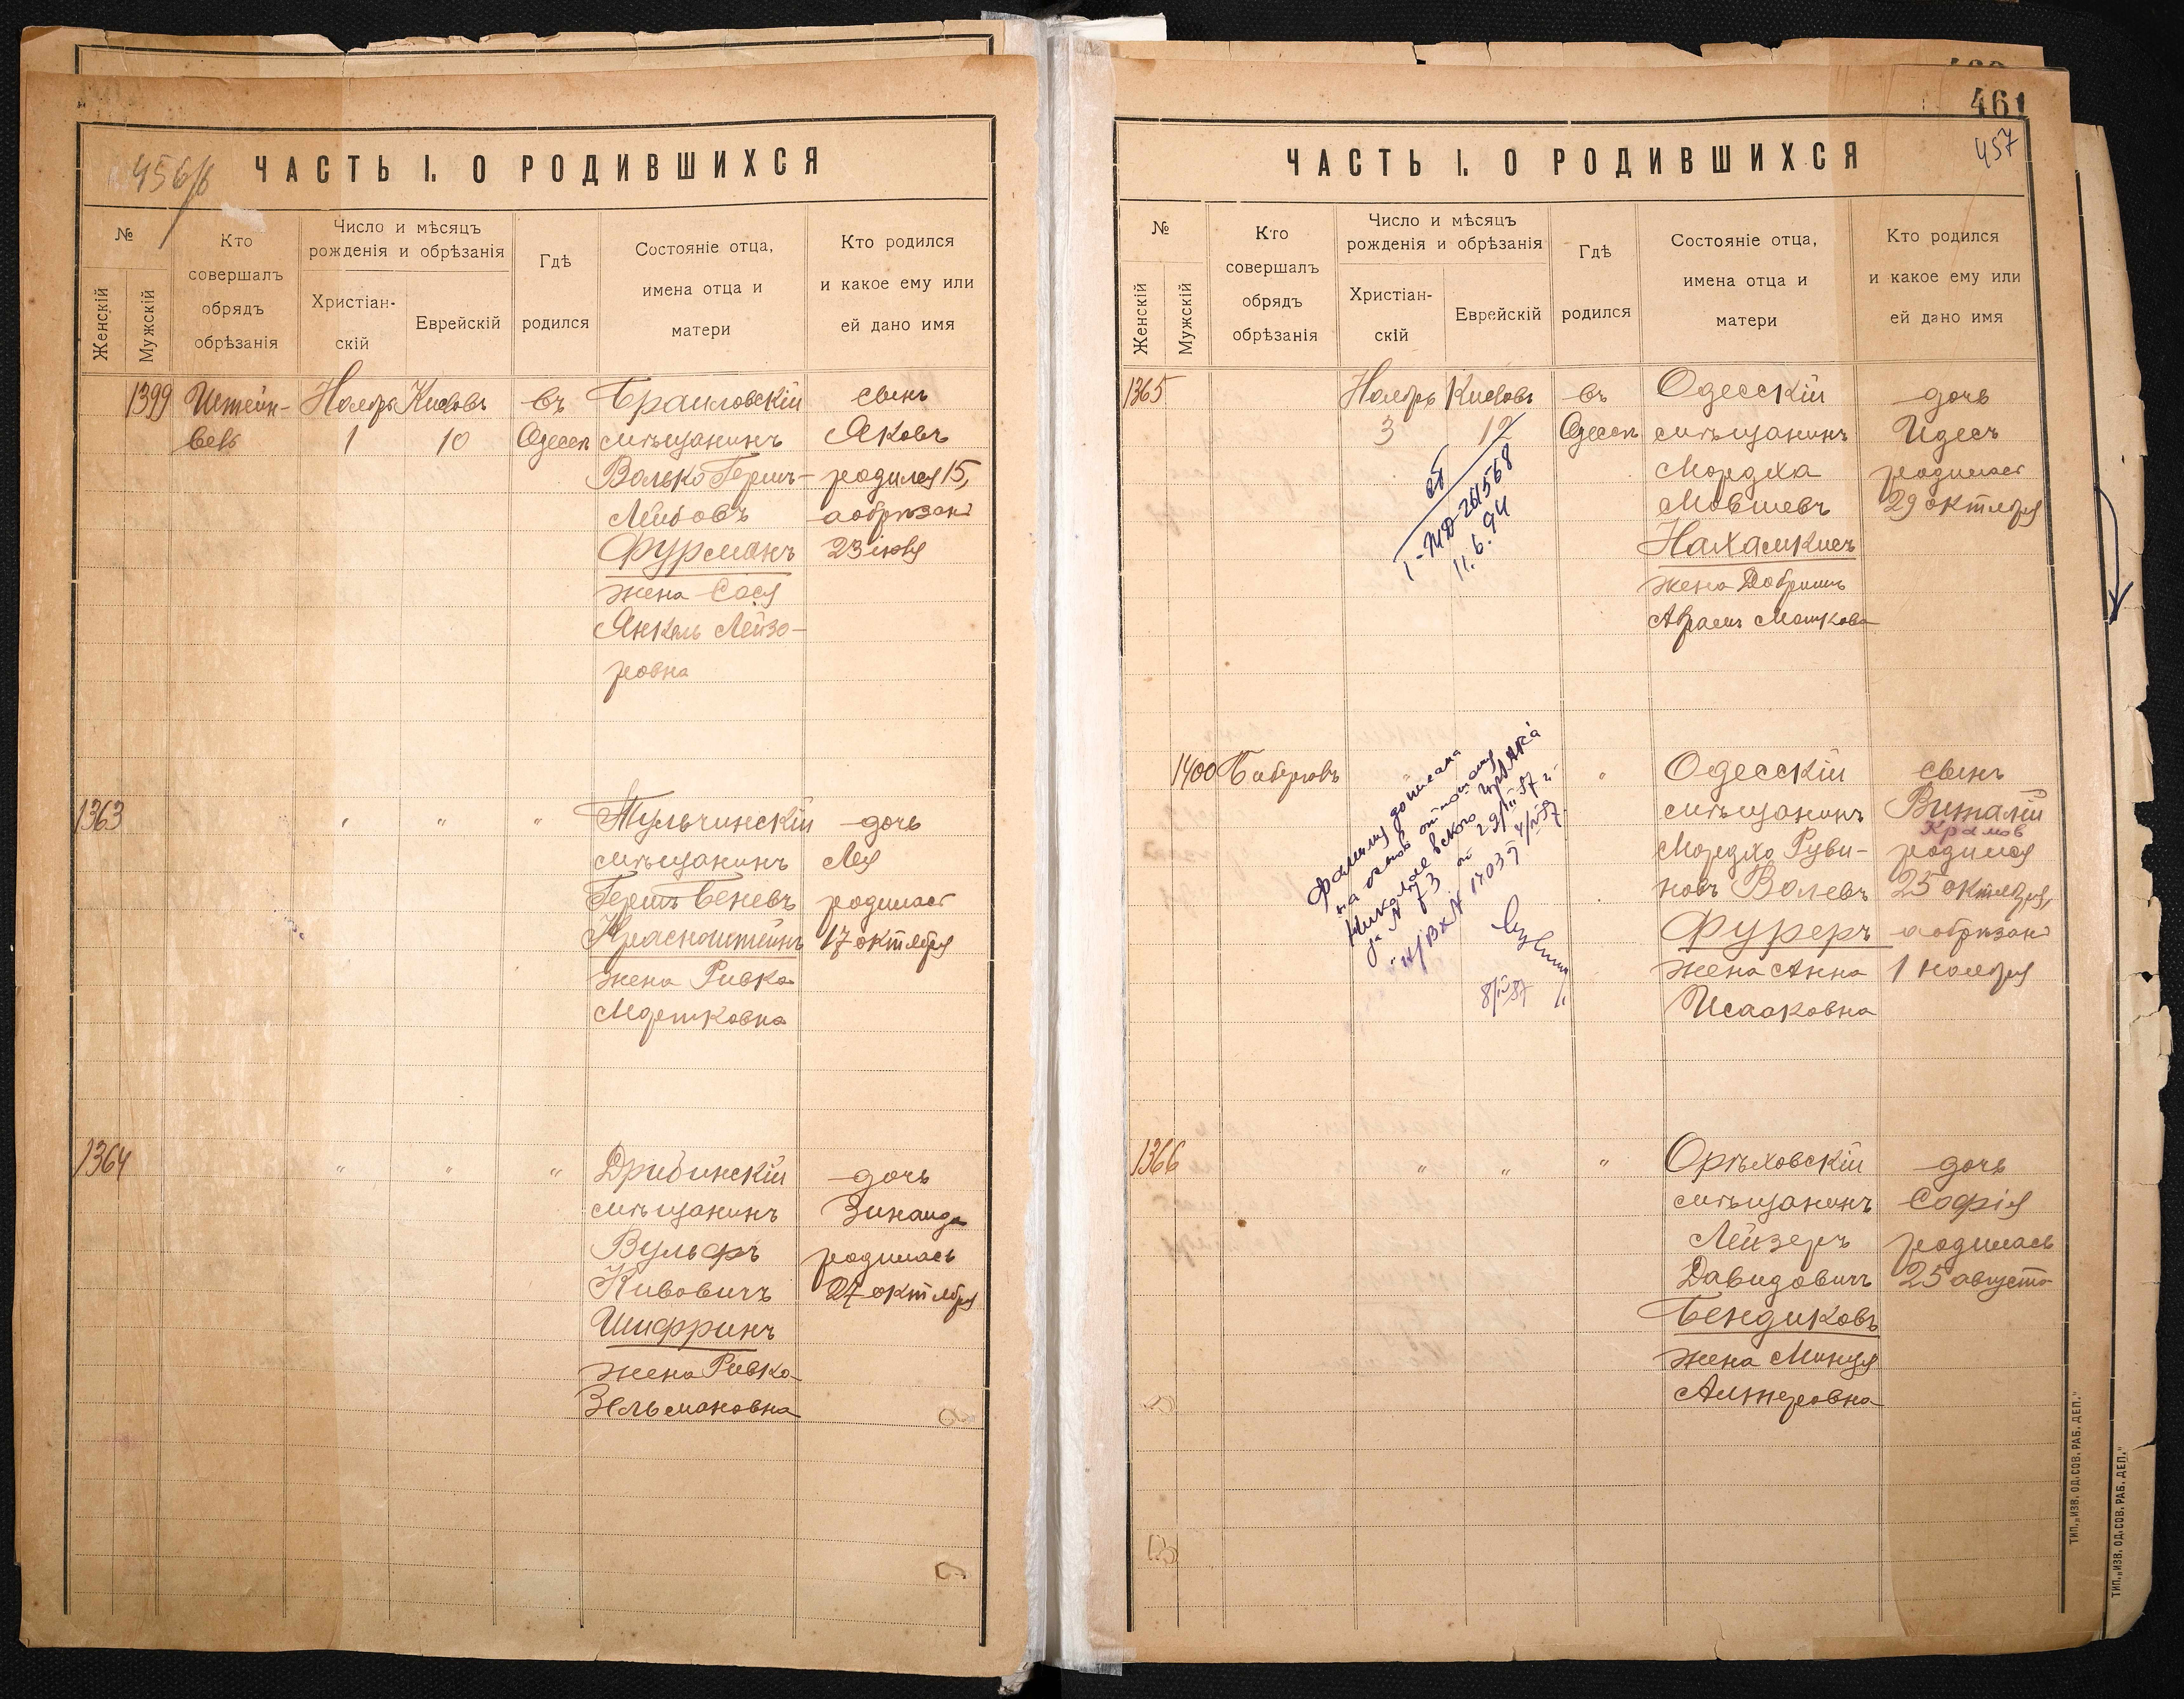 456/б
ЧАСТЬ I. О РОДИВШИХСЯ
№
Женскій
Мужскій
Кто
совершалъ
обрядъ
обрѣзанія
Число и мѣсяцъ
рожденія и обрѣзанія
Христіан-
скій
Еврейскій
Гдѣ
родился
Состояніе отца,
имена отца и
матери
Кто родился
и какое ему или
ей дано имя
1399 Штейн- Ноябрь Кислевъ въ Браиловскій сынъ
1 10 Одессѣ мѣщанинъ Яковъ
Волько Гершъ- родился 15,
Лейбовъ а обрѣзанъ
Фурманъ 23 іюня
жена Сося
Янкель Лейзо-
ровна
1363 " " " Тульчинскій дочь
мѣщанинъ Лея
Гершъ Беневъ родилась
Краснштейнъ 17 октября
жена Ривка
Мошковна
1364 " " " Дрибинскій дочь
мѣщанинъ Зинаида
Вульфъ родилась
Кивовичъ 27 октября
Шифринъ
жена Ривка
Зельмановна
461
457
ЧАСТЬ I. О РОДИВШИХСЯ
№
Женскій
Мужскій
Кто
совершалъ
обрядъ
обрѣзанія
Число и мѣсяцъ
рожденія и обрѣзанія
Христіан-
скій
Еврейскій
Гдѣ
родился
Состояніе отца,
имена отца и
матери
Кто родился
и какое ему или
ей дано имя
1365 Ноябрь Кислевъ въ Одесскій дочь
3 12 Одессѣ мѣщанинъ Идесъ
Мордха родилась
Мовшевъ 29 октября
Нахамкисъ
жена Добришъ
Абрамъ Мошкова
I-ЖД-261568
11.6.94
1400 " Одесскій сынъ
мѣщанинъ Виталій
Крамов
Мордко Руви- родился
новъ Волевъ 25 октября,
Фуреръ а обрѣзанъ
жена Анна 1 ноября
Исааковна
Фамилия дописана
на основ отношения
Николаевского
за № 73 от 29/III 57 г.
Вх № 1703 4/IV 57
8/IV 57
1366 " " " Орѣховскій дочь
мѣщанинъ Софія
Лейзеръ родилась
Давидовичъ 25 августа
Бендиковъ
жена Минця
Алтеровна
ТИП. „ИЗВ. ОД. СОВ. РАБ. ДЕП."
ТИП. „ИЗВ. ОД. СОВ. РАБ. ДЕП."